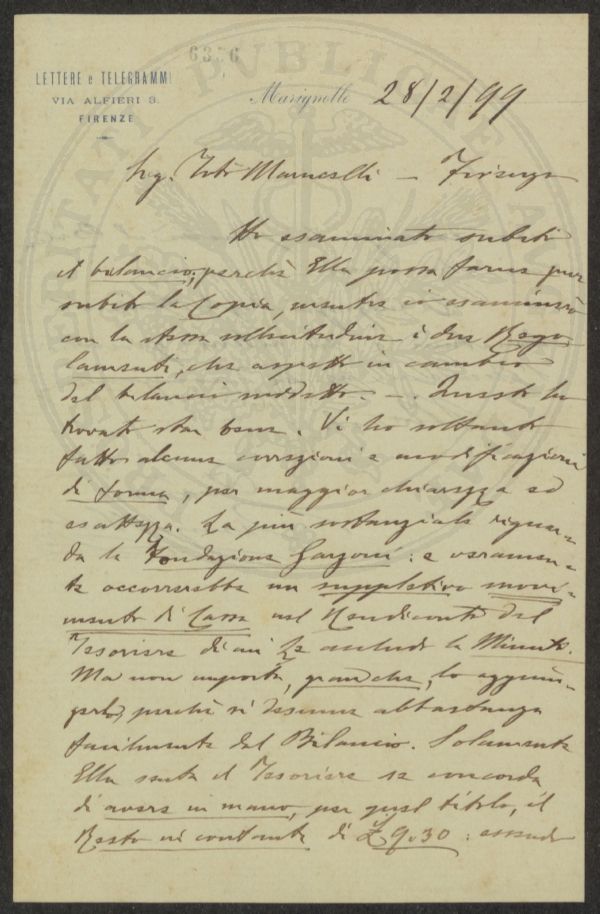 6356
LETTERE e TELEGRAMMI
VIA ALFIERI 3.
FIRENZE
Marignolle 28/2/99
Sig. Marucelli – Firenze
Ho esaminato subito
il bilancio, perchè Ella possa farne pure
subito la Copia, mentre io esaminerò
con la stessa sollecitudine i due Rego-
lamenti, che aspetto in cambio
del bilancio suddetto. –. Questo ho
trovato star bene. Vi ho soltanto
fatto alcune correzioni e modificazioni
di forma, per maggior chiarezza ed
esattezza. La più sostanziale riguar-
da la Fondazione Garzoni: e veramen-
te occorrerebbe un suppletivo movi-
mento di Cassa nel Rendiconto del
Tesoriere di cui Le accludo la Minuta.
Ma non importa, granchè, lo aggiun-
gerlo, perchè si desume abbastanza
facilmente dal Bilancio. Solamente
Ella senta il Tesoriere se concorda
di avere in mano, per quel titolo, il
Resto in contante di £ 9.30: essendo